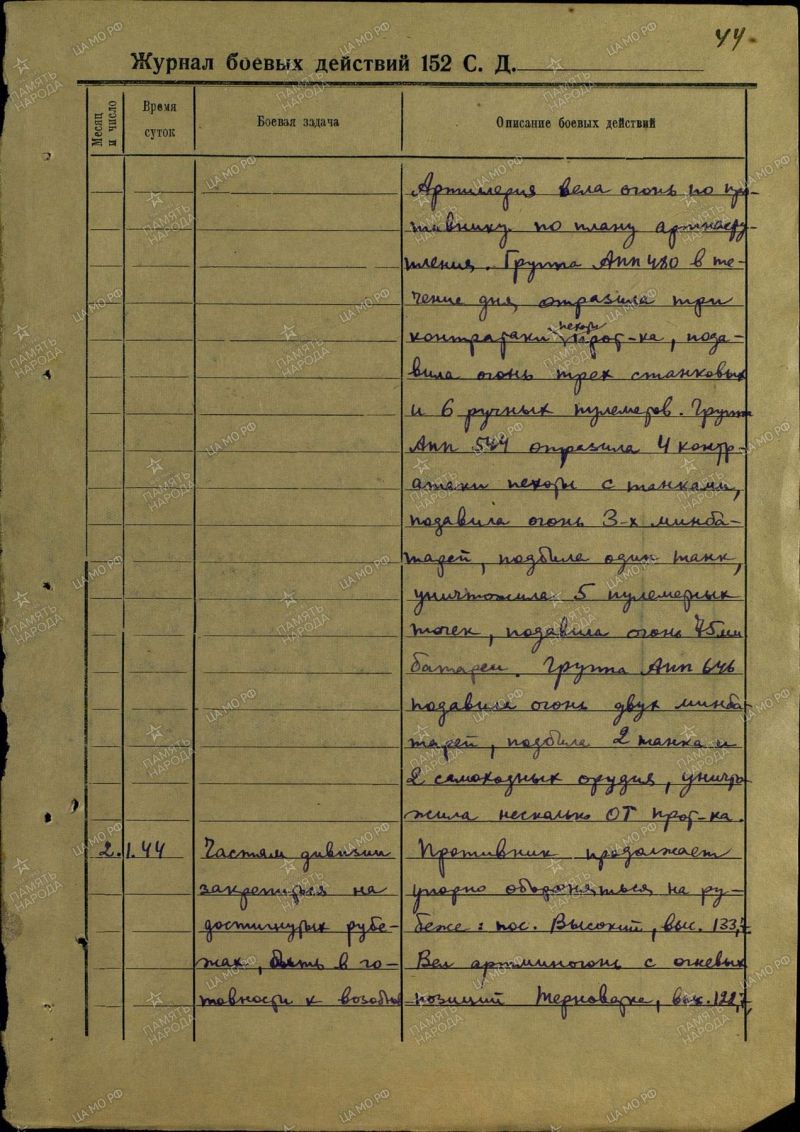 44.
Журнал боевых действий 152 С. Д.
Месяц и число
Время суток
Боевая задача
Описание боевых действий
Артиллерия вела огонь по про-
тивнику по плану артнасту-
пления. Группа Апп 480 в те-
чение дня отразила три
контратаки пехоты прот-ка, пода-
вила огонь трех станковых
и 6 ручных пулеметов. Группа
Апп 544 отразила 4 контр-
атаки пехоты с танками,
подавила огонь 3-х минба-
тарей, подбила один танк,
уничтожила 5 пулеметных
точек, подавила огонь 75 мм
батареи. Группа Апп 646
подавила огонь двух минба-
тарей, подбила 2 танка и
2 самоходных орудия, уничто-
жила несколько ОТ прот-ка.
2.1.44
Частям дивизии
закрепиться на
достигнутых рубе-
жах, быть в го-
товности к возобно
Противник продолжает
упорно обороняться на ру-
беже: пос. Высокий, выс. 133,7
Вел артминогонь с огневых
позиций Терноватка, выс. 122,7,